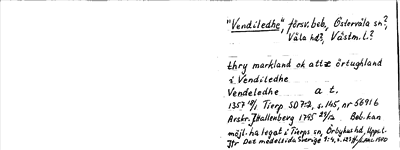 "Vendiledhe", försv. beb., Östervåla sn?,
Våla hd?, Västm. l.?
thry markland ok attæ örtughland
i Vendiledhe
Vendeledhe a t.
1357 18/1 Tierp SD 7:2, s. 145, nr 5691 6
Avskr. J Hallenberg 1795 Beb. kan
möjl. ha legat i Tierps sn, Örbyhus hd, Uppl.
Jfr Det medeltida Sverige 1:4, s.